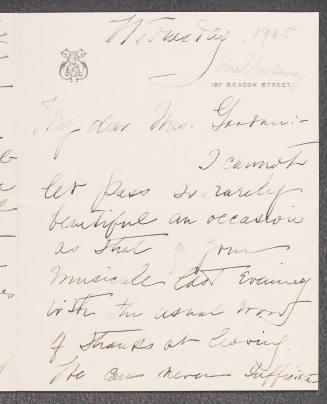 Wednesday 1905
Melba sang
197 BEACON STREET.
My dear Mrs. Gardner:-
I cannot
let pass so rarely
beautiful an occasion
as that of your
Musicale last Evening
with the usual word
of thanks at leaving.
We can never sufficiently